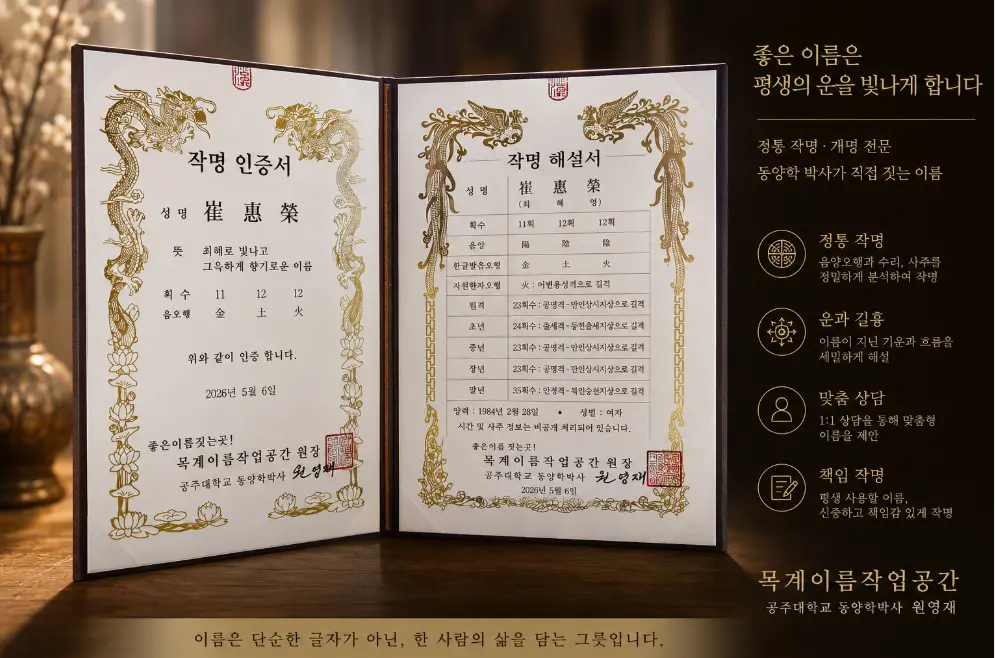 작명 인증서
성 명 崔 惠 榮
뜻 최혜로 빛나고
그윽하게 향기로운 이름
획 수 11 12 12
음오행 金 土 火
위와 같이 인증 합니다.
2026년 5월 6일
좋은이름짓는곳!
목계이름작업공간 원장
공주대학교 동양학박사 원영재
작명 해설서
성 명 崔 惠 榮
(최 혜 영)
획수 11획 12획 12획
음양 陽 陰 陰
한글발음오행 金 土 火
자원한자오행 火 : 어변용성격으로 길격
원격 23획수 : 공명격 - 만인상시지상으로 길격
초년 24획수 : 출세격 - 등천출세지상으로 길격
중년 23획수 : 공명격 - 만인상시지상으로 길격
장년 23획수 : 공명격 - 만인상시지상으로 길격
말년 35획수 : 안정격 - 지상으로 길격
양력 : 1984년 2월 28일 • 성별 : 여자
시간 및 사주 정보는 비공개 처리되어 있습니다.
좋은이름 짓는곳!
목계이름작업공간 원장
공주대학교 동양학박사 원영재
2026년 5월 6일
좋은 이름은
평생의 운을 빛나게 합니다
정통 작명 · 개명 전문
동양학 박사가 직접 짓는 이름
정통 작명
음양오행과 수리, 사주를
정밀하게 분석하여 작명
운과 길흉
이름이 지닌 기운과 흐름을
세밀하게 해설
맞춤 상담
1:1 상담을 통해 맞춤형
이름을 제안
책임 작명
평생 사용할 이름,
신중하고 책임감 있게 작명
목계이름작업공간
공주대학교 동양학박사 원영재
이름은 단순한 글자가 아닌, 한 사람의 삶을 담는 그릇입니다.